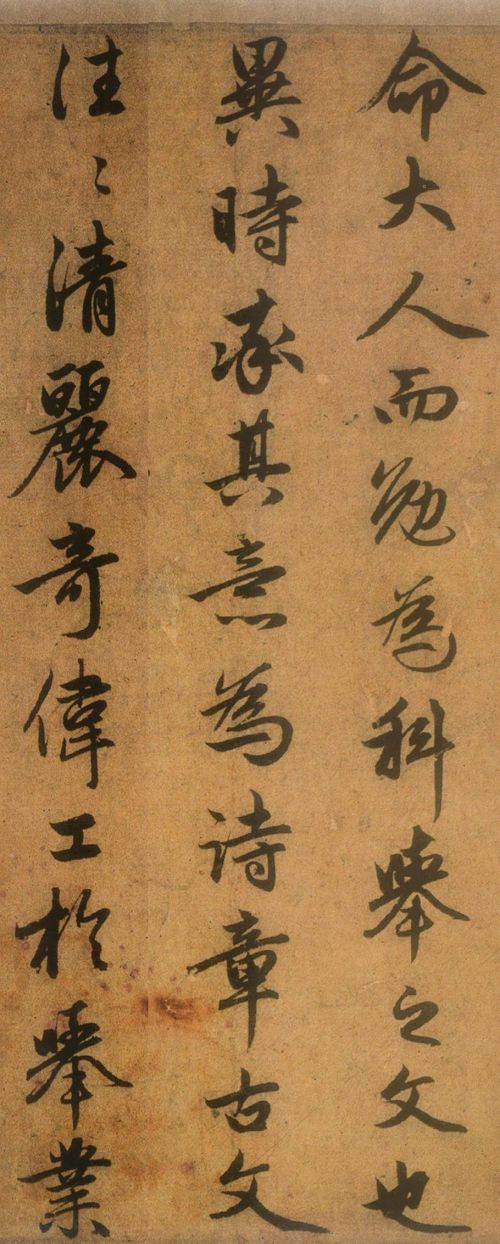 命大人而勉為科舉之文也
異時率其意為詩章古文
往〻清麗奇偉工於舉業